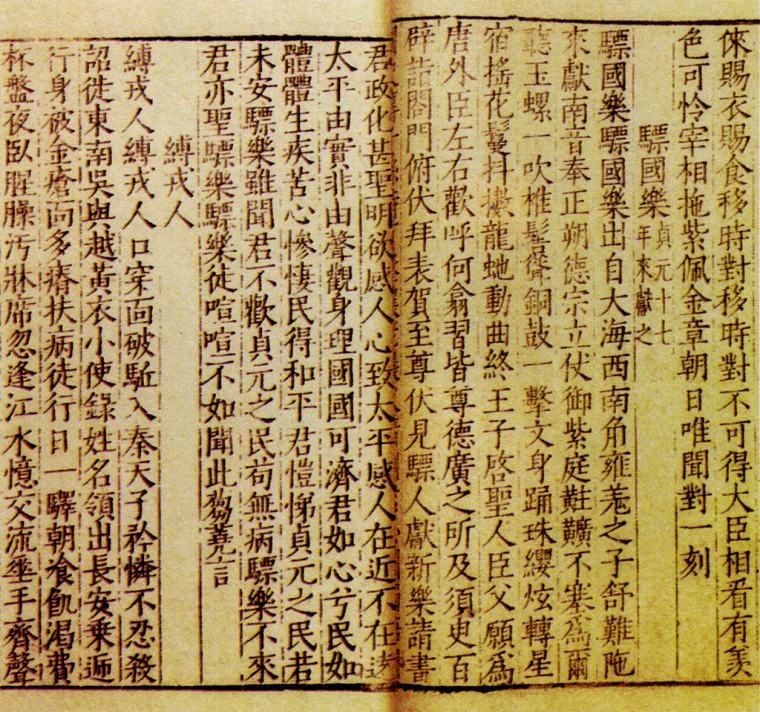 倈賜衣賜食移時對移時對不可得大臣相看有羨
色可怜宰相拖紫佩金章朝日唯聞對一刻
驃國樂貞元十七年來獻之
驃國樂驃國樂出自大海西南角雍羗之子舒難陁
來獻南音奉正朔德宗立仗御紫庭黈纊不塞為爾
聽玉螺一吹椎髻聳銅鼓一擊文身踊珠纓炫轉星
宿搖花鬘抖擻龍虵動曲終王子啓聖人臣父願為
唐外臣左右歡呼何翕習皆尊德廣之所及須臾百
辟詣閤門俯伏拜表賀至尊伏見驃人獻新樂請書
君政化甚聖明欲感人心致太平感人在近不在遠
太平由實非由聲觀身理國國可濟君如心兮民如
體體生疾苦心慘悽民得和平君愷悌貞元之民若
未安驃樂雖聞君不歡貞元之民苟無病驃樂不來
君亦聖驃樂驃樂徒喧喧不如聞此芻蕘言
縛戎人
縛戎人縛戎人口穿面破驅入秦天子矜憐不忍殺
詔徙東南吳與越黃衣小使錄姓名領出長安乘遞
行身被金瘡面多瘠扶病徒行日一驛朝飡飢渴費
杯盤夜臥腥臊汚牀席忽逢江水憶交流垂手齊聲